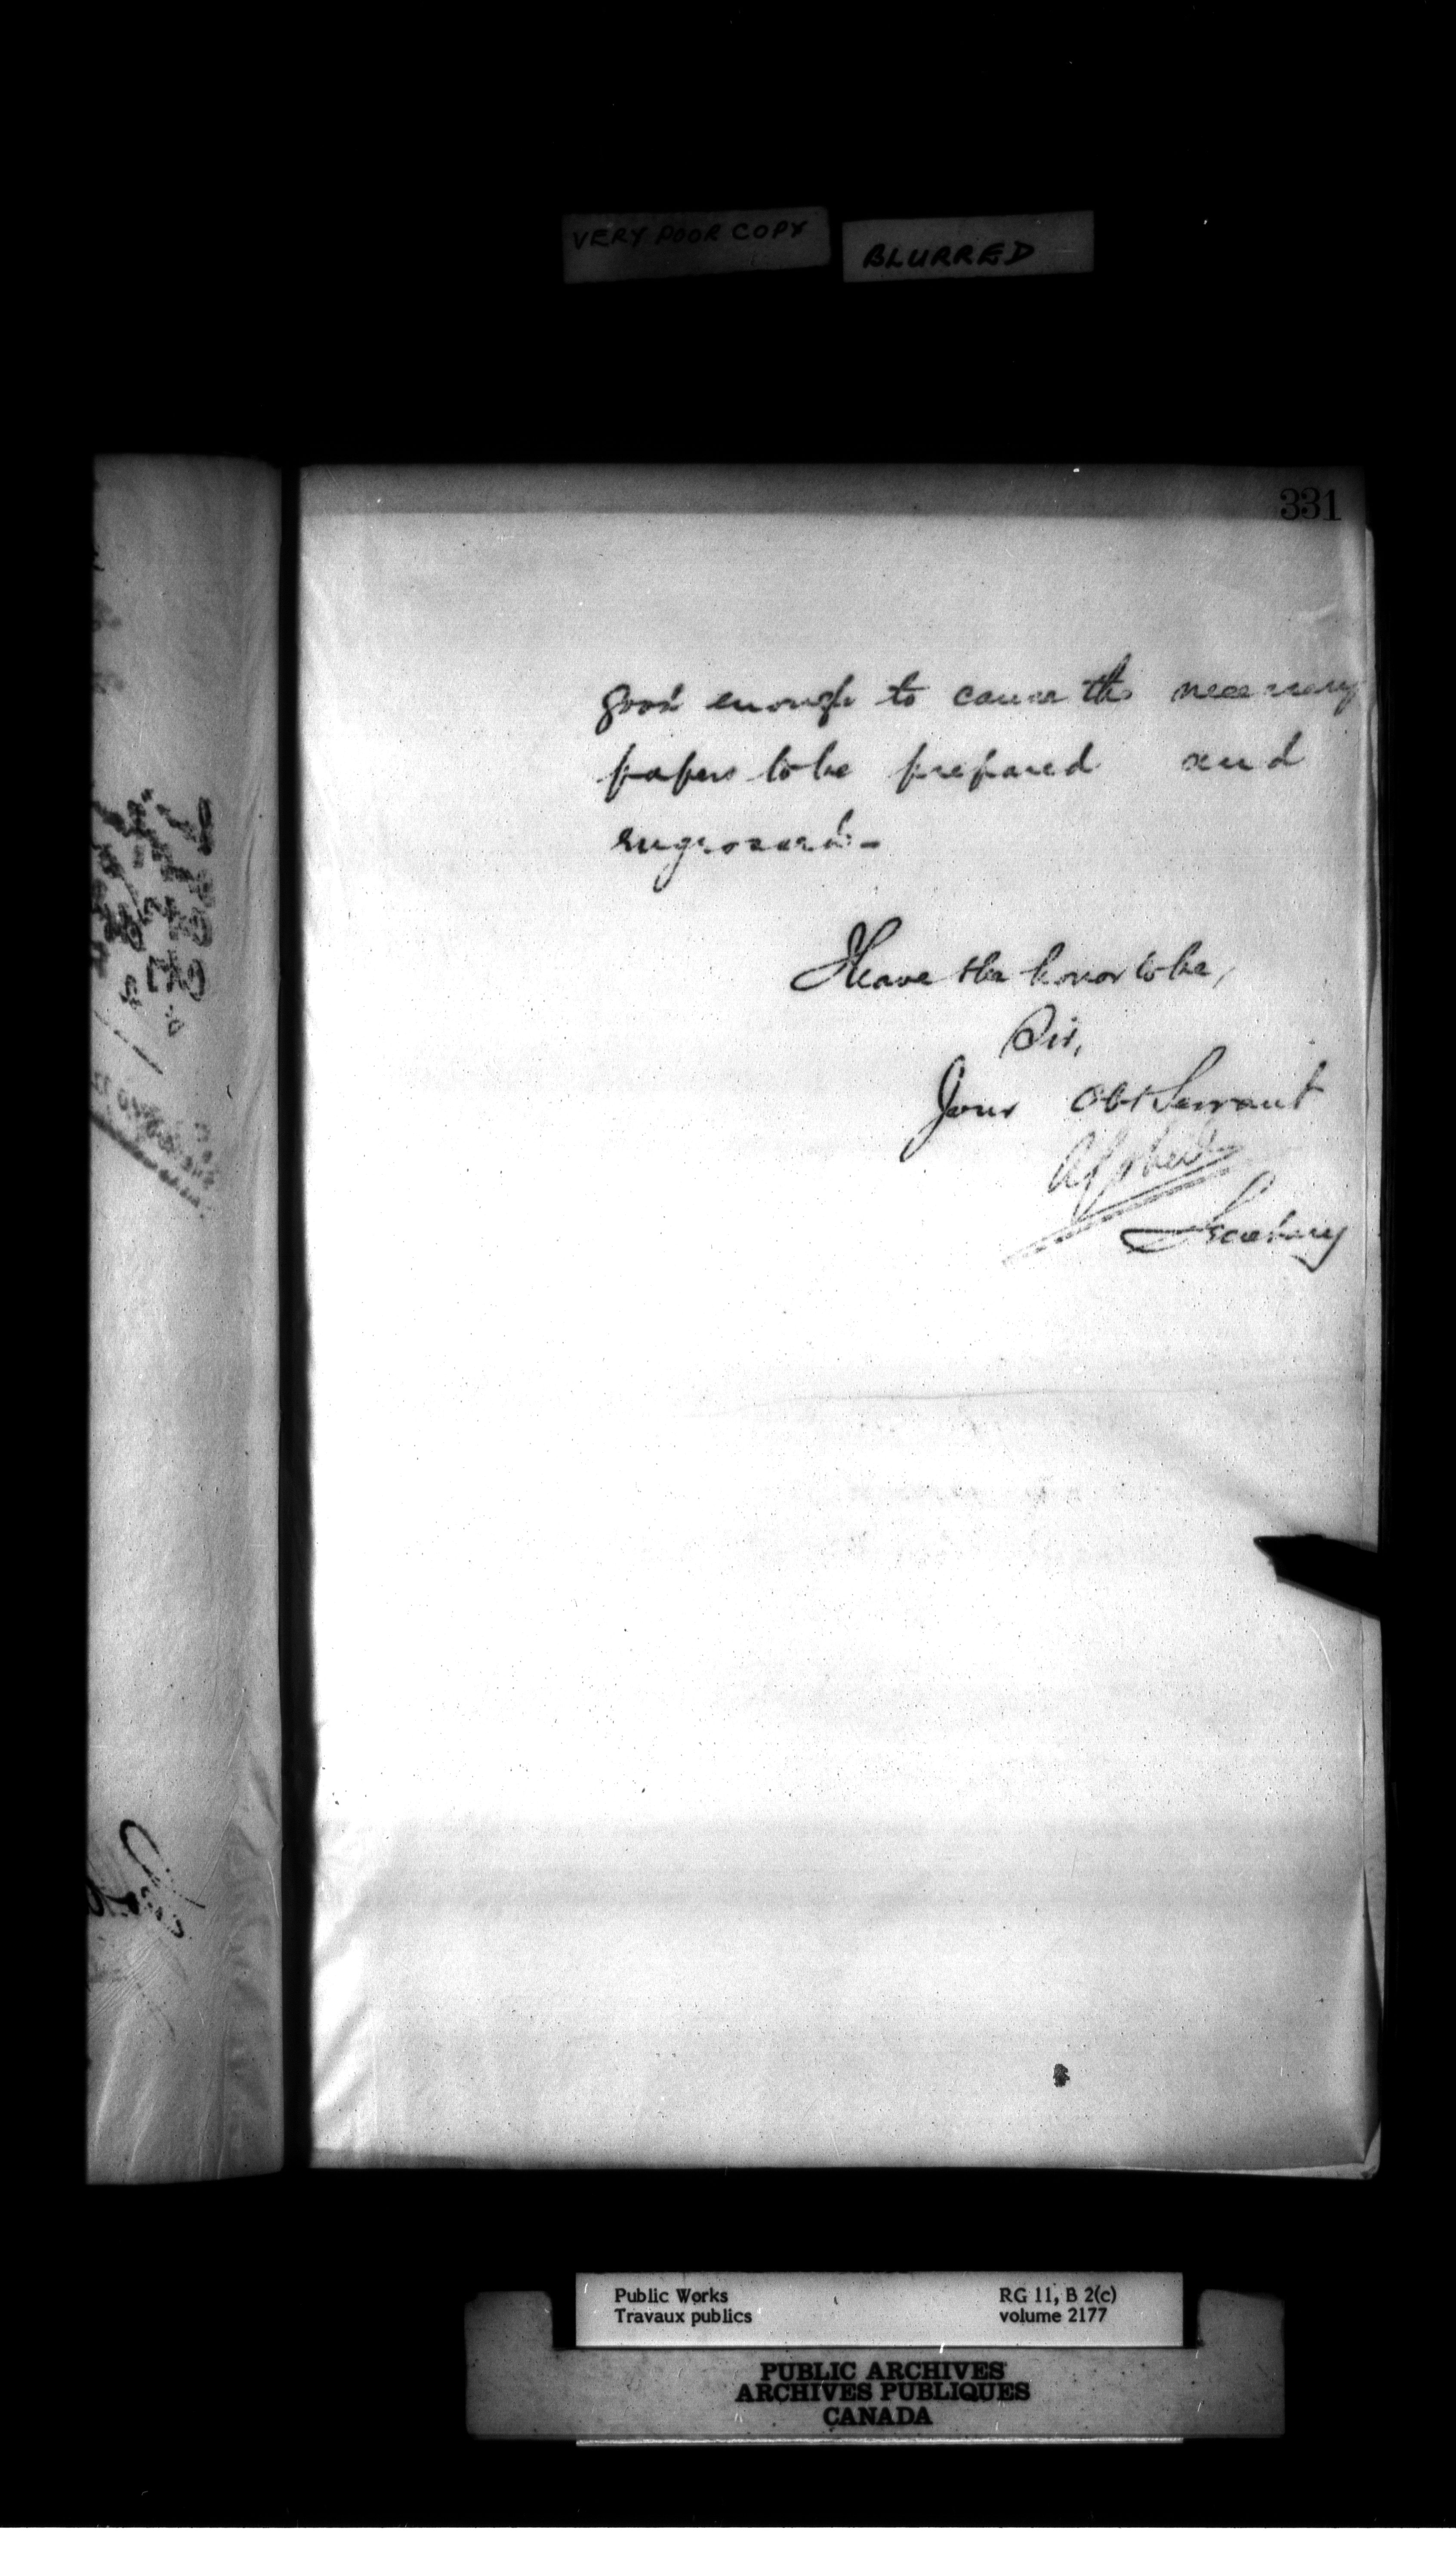 VERY POOR COPY
BLURRED
331
good enough to cause the necessary
papers to be prepared and
engrossed.-
I have the honor to be,
Sir,
Your Obt Servant
Secretary
Public Works
Travaux publics
RG 11, B 2(c)
volume 2177
PUBLIC ARCHIVES
ARCHIVES PUBLIQUES
CANADA